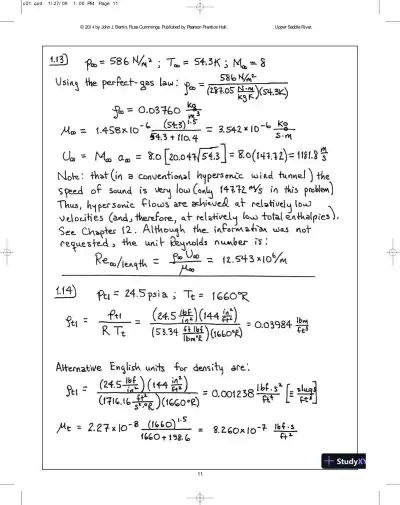 c01.qxd 1/27/09 1:00 PM Page 11
© 2014 by John J. Bertin, Russ Cummings. Published by Pearson Practice Hall, Upper Saddle River,
1.13) p∞ = 586 N/m² ; T∞ = 54.3K ; M∞ = 8
Using the perfect-gas law: ρ∞ = 586 N/m² / (287.05 N·m/kg K)(54.3K)
ρ∞ = 0.03760 kg/m³
μ∞ = 1.458×10⁻⁶ (54.3)^1.5 / 54.3 + 110.4 = 3.542×10⁻⁶ kg/s·m
U∞ = M∞ a∞ = 8.0 [20.047√54.3] = 8.0(147.72) = 1181.8 m/s
Note: that (in a conventional hypersonic wind tunnel) the
speed of sound is very low (only 147.72 m/s in this problem)
Thus, hypersonic flows are achieved at relatively low
velocities (and, therefore, at relatively low total enthalpies).
See Chapter 12. Although the information was not
requested, the unit Reynolds number is:
Re∞/length = ρ∞ U∞ / μ∞ = 12.543×10⁶/m
1.14) pt1 = 24.5 psia ; Tt = 1660°R
ρt1 = pt1 / R Tt = (24.5 lbf/in²)(144 in²/ft²) / (53.34 ft lbf/lbm°R)(1660°R) = 0.03984 lbm/ft³
Alternative English units for density are:
ρt1 = (24.5 lbf/in²)(144 in²/ft²) / (1716.16 ft²/s²·°R)(1660°R) = 0.001238 lbf·s²/ft⁴ [≡ slugs/ft³]
μt = 2.27×10⁻⁸ (1660)^1.5 / 1660 + 198.6 = 8.260×10⁻⁷ lbf·s/ft²
11